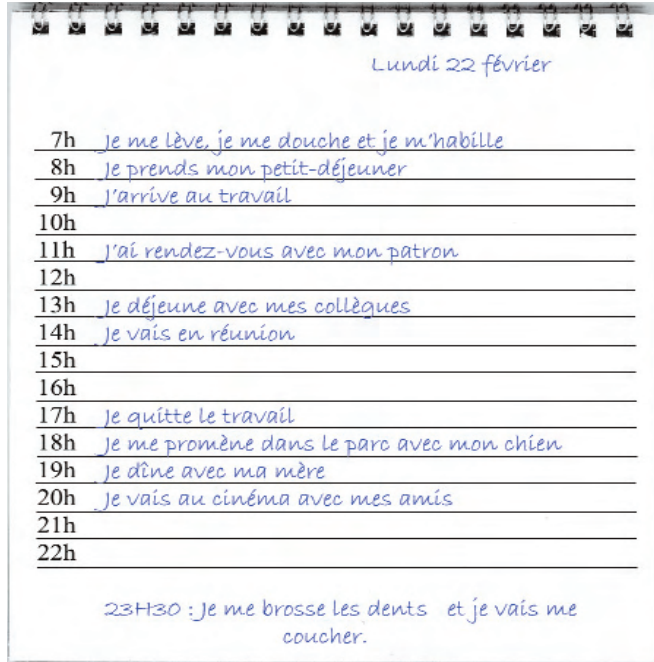 Lundi 22 février
7h Je me lève, je me douche et je m'habille
8h Je prends mon petit-déjeuner
9h J'arrive au travail
10h
11h J'ai rendez-vous avec mon patron
12h
13h Je déjeune avec mes collègues
14h Je vais en réunion
15h
16h
17h Je quitte le travail
18h Je me promène dans le parc avec mon chien
19h Je dîne avec ma mère
20h Je vais au cinéma avec mes amis
21h
22h
23H30 : Je me brosse les dents et je vais me
coucher.